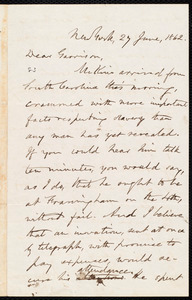 New York, 27 June, 1862.
Dear Garrison,
McKim arrived from
South Carolina this morning,
crammed with more important
facts respecting slavery than
any man has yet revealed.
If you could hear him talk
ten minutes, you would say,
as I do, that he ought to be
at Framingham on the 4th,
without fail. And I believe
that an invitation, sent at once
by telegraph, with promise to
pay expenses, would se-
cure his attendance. He spent